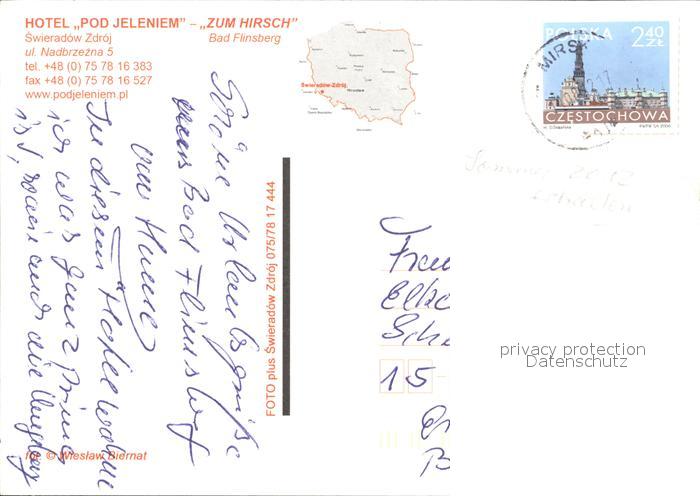 HOTEL „POD JELENIEM” – „ZUM HIRSCH”
Świeradów Zdrój Bad Flinsberg
ul. Nadbrzeżna 5
tel. +48 (0) 75 78 16 383
fax +48 (0) 75 78 16 527
www.podjeleniem.pl
Świeradów-Zdrój
Wrocław
POLSKA 2,40 ZŁ
CZĘSTOCHOWA
MIRSK
Sommer 2012
erhalten
Schöne Urlaubsgrüße
aus Bad Flinsberg
von Hanne
In diesem Hotel wohne
ich, was ganz Prima
ist, sowie auch die Umgebung
FOTO plus Świeradów Zdrój 075/78 17 444
fot. © Wiesław Biernat
Frau
Elke
Sch
15
privacy protection
Datenschutz